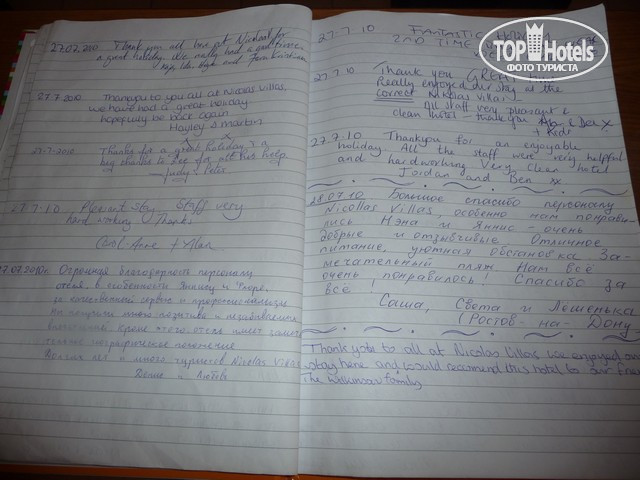 27.07.2010 Thank you all here at Nicholas for
a great holiday. We really had a good time
27.7.2010 Thankyou to you all at Nicolas Villas,
we have had a great holiday
hopefully be back again
Hayley & Martin
27-7-2010 Thanks for a great holiday, & a
big thanks to Reg for all his help.
Judy Peter
27.7.10 Pleasant stay. Staff very
hard working Thanks
Carol-Anne + Alan
27.07.2010г. Огромная благодарность персоналу
отеля, в особенности Яннису и
за качественный сервис и профессионализм
Мы получили много позитива и незабываемых
Кроме этого отель имеет
географическое положение
и много туристов Nicolas Villas
27.7.10 FANTASTIC
2ND TIME
27.7.10 Thank you GREAT time
Really enjoyed our stay at the
correct Nicolas villa!
all staff very pleasant &
clean hotel - thankyou
+ Kids
27.7.10 Thankyou for an enjoyable
holiday. All the staff were very helpful
and hardworking. Very clean hotel
Jordan and Ben xx
28.07.10 Большое спасибо персоналу
Nicollas Villas, особенно нам понрави-
лись Нэна и Яннис - очень
добрые и отзывчивые. Отличное
питание, уютная обстановка. За-
мечательный пляж. Нам всё
очень понравилось! Спасибо за
всё!
Саша, Света и Лёшенька
(Ростов-на-Дону
Thank you to all at Nicolas Villas we enjoyed our
stay here and would recommend this hotel to our friends
The Wilkinson family
TOP Hotels
ФОТО ТУРИСТА